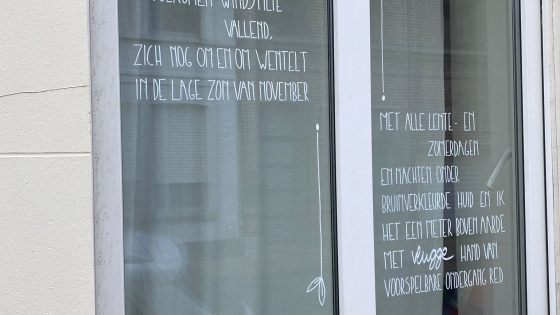 WINDSTILTE
VALLEND,
ZICH NOG OM EN OM WENTELT
IN DE LAGE ZON VAN NOVEMBER
MET ALLE LENTE- EN
ZOMERDAGEN
EN NACHTEN ONDER
BRUINVERKLEURDE HUID EN IK
HET EEN METER BOVEN AARDE
MET vlugge HAND VAN
VOORSPELBARE ONDERGANG RED